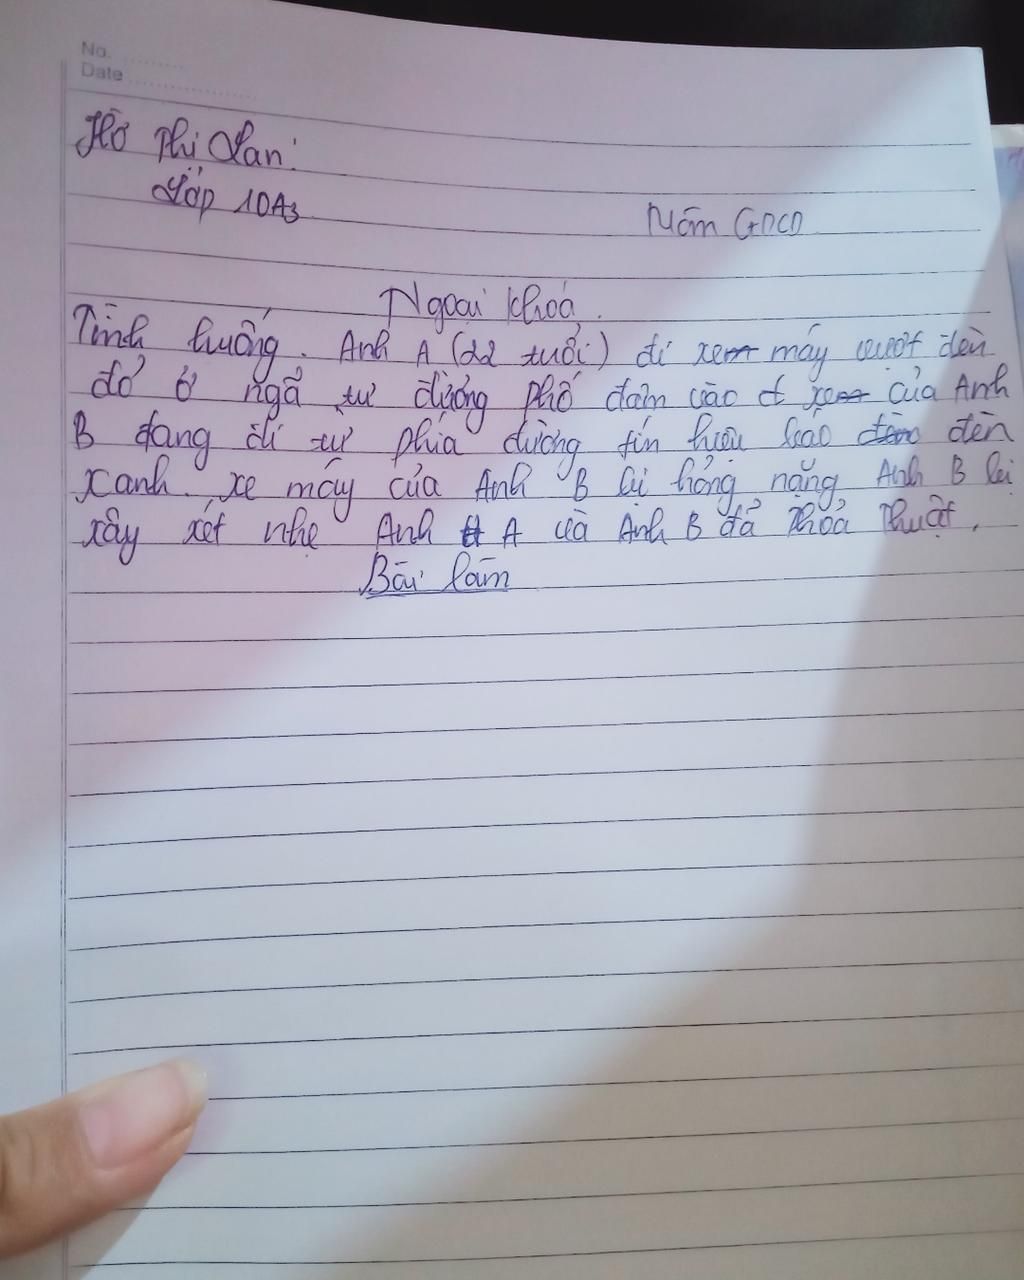 No.
Date
Hồ Thị Lan
Lớp 10A3
Môn GDCD
Ngoại khoá.
Tình huống. Anh A (22 tuổi) đi xe máy vượt đèn
đỏ ở ngã tư đường phố đâm vào xe của Anh
B đang đi từ phía đường tín hiệu báo đèn
xanh. xe máy của Anh B bị hỏng nặng Anh B bị
xây xét nhẹ Anh A và Anh B đã thoả thuật.
Bài làm